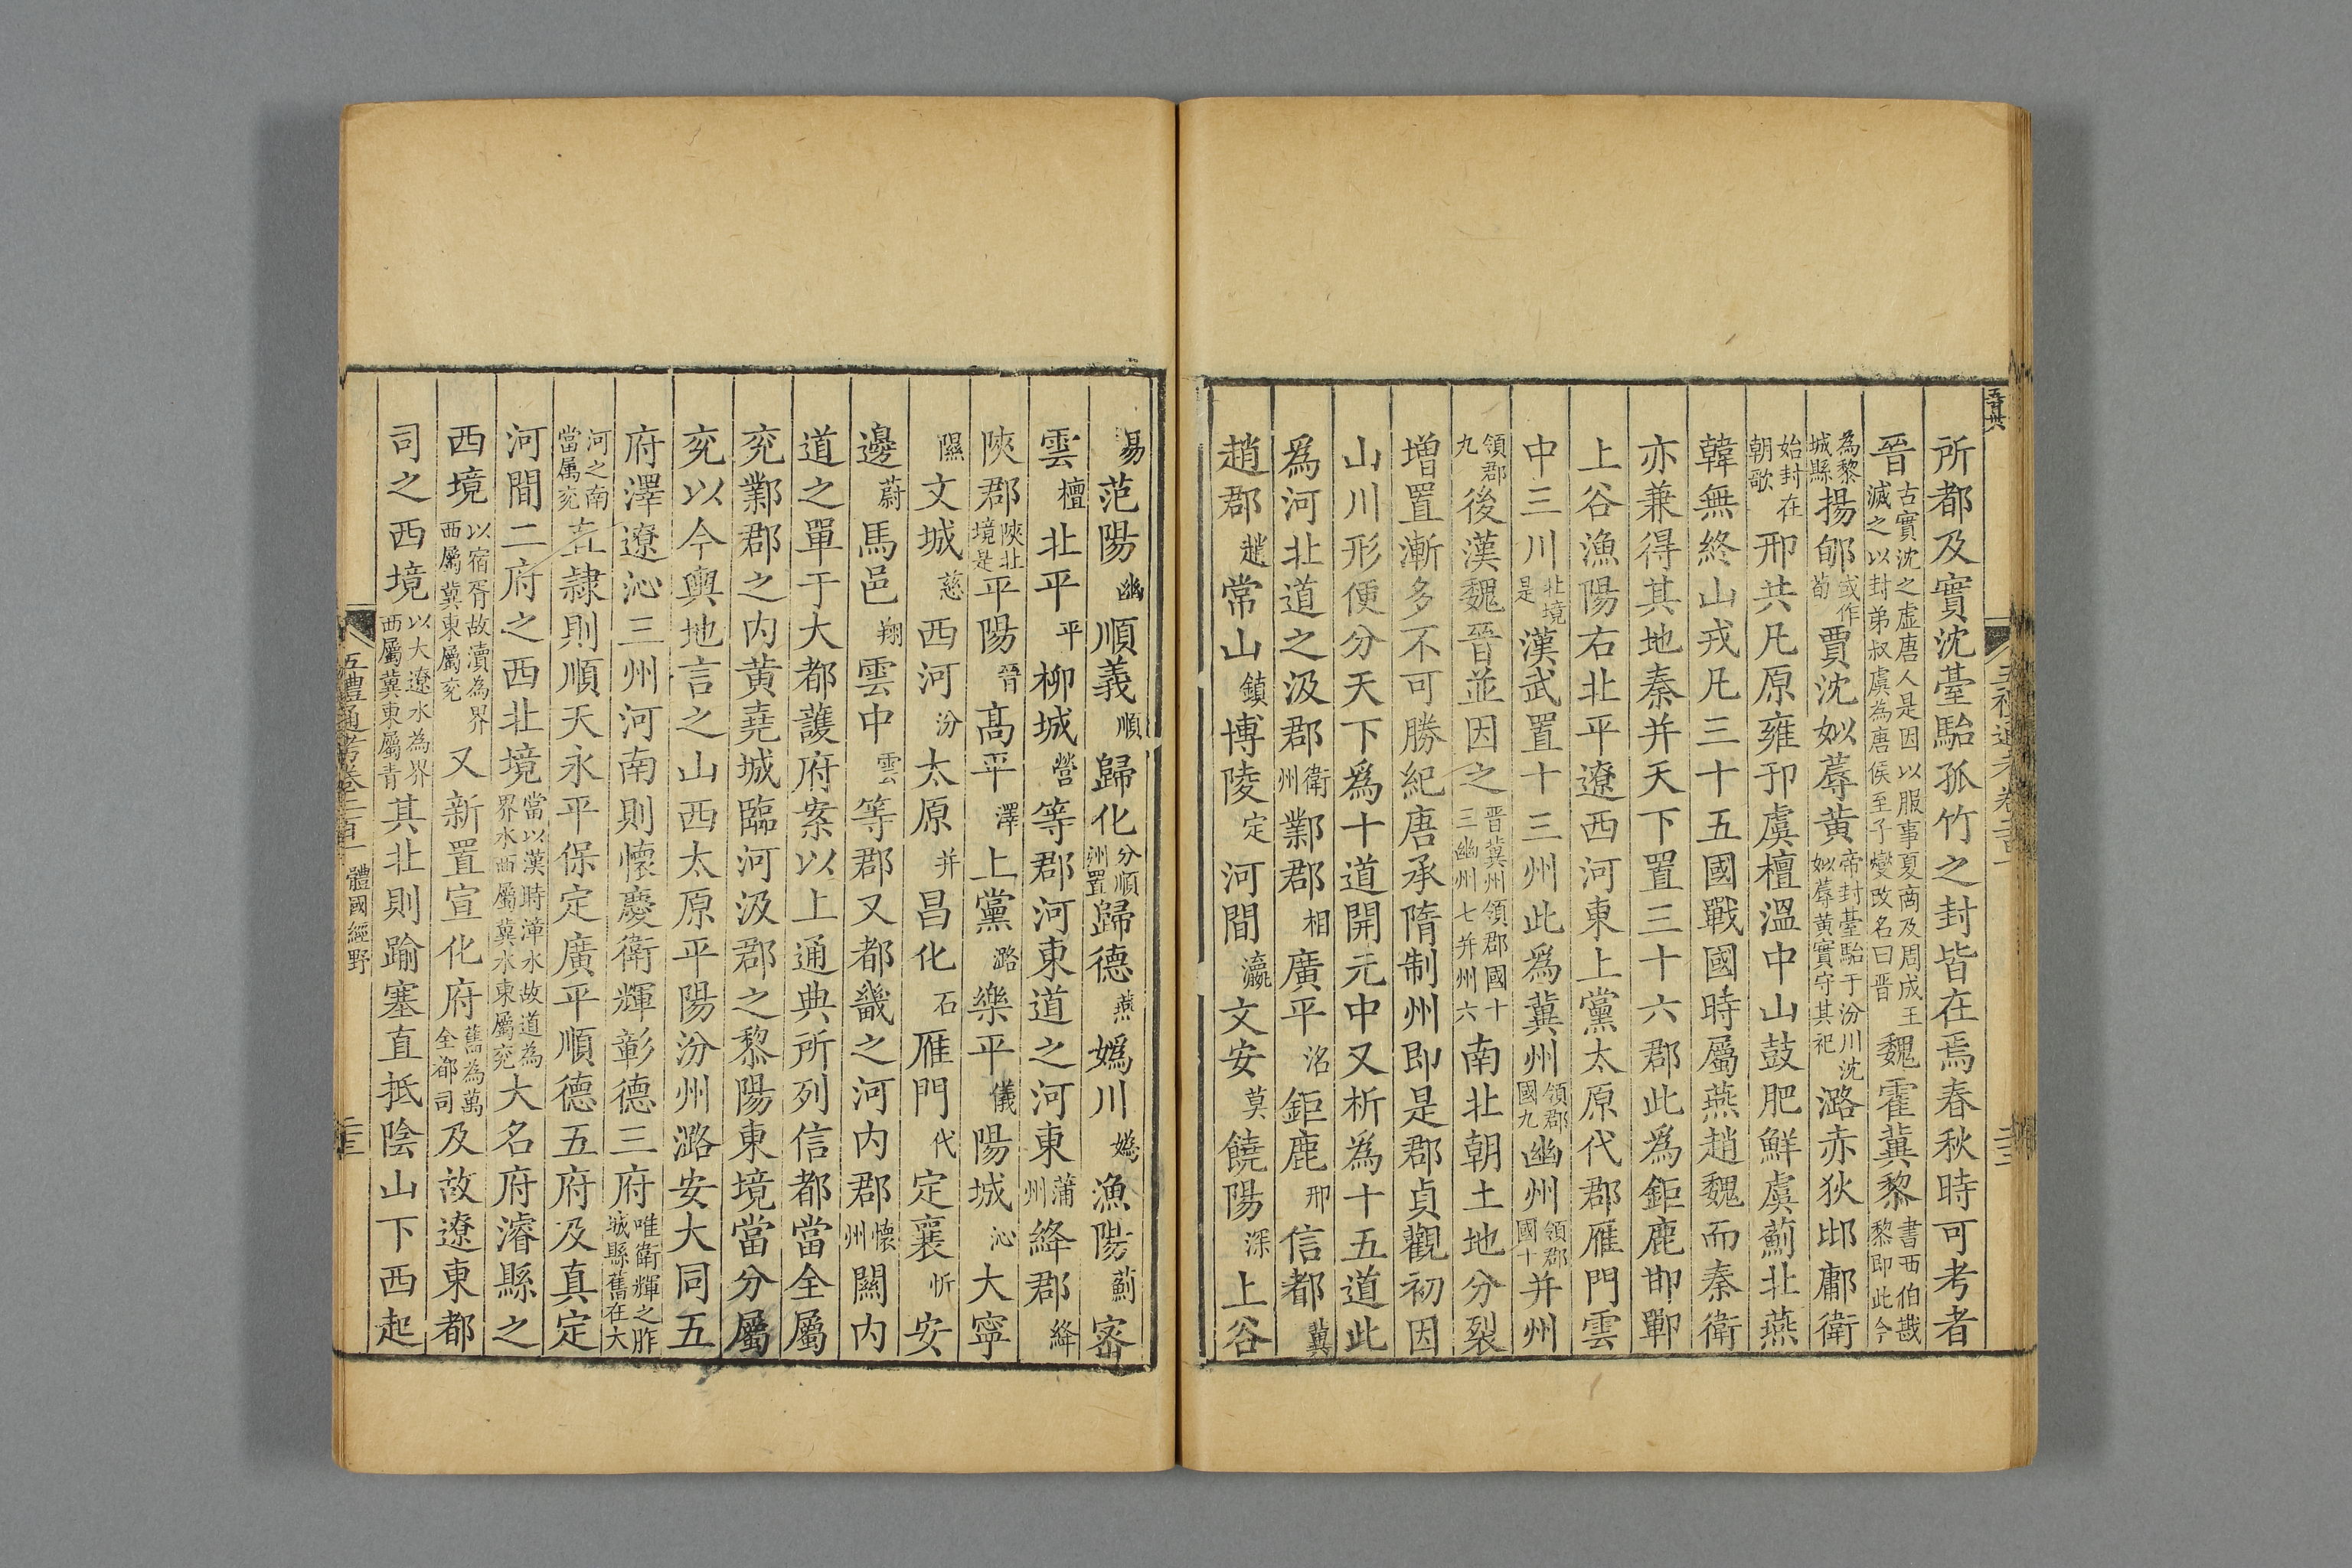 所都及實沈臺駘孤竹之封皆在焉春秋時可考者
晉古實沈之虛唐人是因以服事夏商及周成王滅之以封弟叔虞為唐侯至子燮改名曰晉魏霍冀黎書西伯戡黎即此今
為黎城縣揚郇或作荀賈沈姒蓐黃帝封臺駘于汾川沈姒蓐黃實守其祀潞赤狄邶鄘衛
始封在朝歌邢共凡原雍邘虞檀溫中山鼓肥鮮虞薊北燕
韓無終山戎凡三十五國戰國時屬燕趙魏而秦衛
亦兼得其地秦并天下置三十六郡此爲鉅鹿邯鄲
上谷漁陽右北平遼西河東上黨太原代郡雁門雲
中三川北境是漢武置十三州此爲冀州領郡國九幽州領郡國十并州
領郡九後漢魏晉並因之晉冀州領郡國十三幽州七并州六南北朝土地分裂
增置漸多不可勝紀唐承隋制州即是郡貞觀初因
山川形便分天下爲十道開元中又析爲十五道此
爲河北道之汲郡衛州鄴郡相廣平洺鉅鹿邢信都冀
趙郡趙常山鎮博陵定河間瀛文安莫饒陽深上谷
易范陽幽順義順歸化分順州置歸德燕嬀川嬀漁陽薊密
雲檀北平平柳城營等郡河東道之河東蒲州絳郡絳
陝郡陝北境是平陽晉高平澤上黨潞樂平儀陽城沁大寧
隰文城慈西河汾太原并昌化石雁門代定襄忻安
邊蔚馬邑翔雲中雲等郡又都畿之河内郡懷州關内
道之單于大都護府案以上通典所列信都當全屬
兖鄴郡之内黃堯城臨河汲郡之黎陽東境當分屬
兖以今輿地言之山西太原平陽汾州潞安大同五
府澤遼沁三州河南則懷慶衛輝彰德三府唯衛輝之胙城縣舊在大
河之南當属兖直隸則順天永平保定廣平順德五府及真定
河間二府之西北境當以漢時漳水故道為界水西屬冀水東屬兖大名府濬縣之
西境以宿胥故瀆為界西屬冀東屬兖又新置宣化府舊為萬全都司及故遼東都
司之西境以大遼水為界西屬冀東屬青其北則踰塞直抵陰山下西起
五禮通考卷二百一 體國經野 二十三